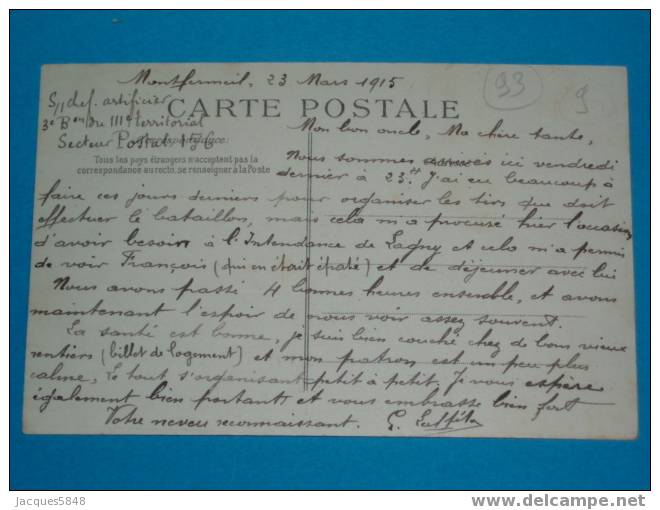 Montfermeil, 23 Mars 1915
93
9
S/chef artificier
3e Bon du 111e territorial
Secteur Postal 156
CARTE POSTALE
Correspondance:
Tous les pays étrangers n'acceptent pas la
correspondance au recto, se renseigner à la Poste
Mon bon oncle, Ma chère tante,
Nous sommes arrivés ici vendredi
dernier à 23h. J'ai eu beaucoup à
faire ces jours derniers pour organiser les tirs que doit
effectuer le bataillon, mais cela m'a procuré hier l'occasion
d'avoir besoin à l'Intendance de Lagny et cela m'a permis
de voir François (qui en était épaté) et de déjeuner avec lui
Nous avons passé 4 bonnes heures ensemble, et avons
maintenant l'espoir de nous voir assez souvent.
La santé est bonne, je suis bien couché chez de bons vieux
rentiers (billet de logement) et mon patron est un peu plus
calme, Le tout s'organisant petit à petit. Je vous espère
également bien portants et vous embrasse bien fort
Votre neveu reconnaissant. G.
Jacques5848
www.delcampe.net